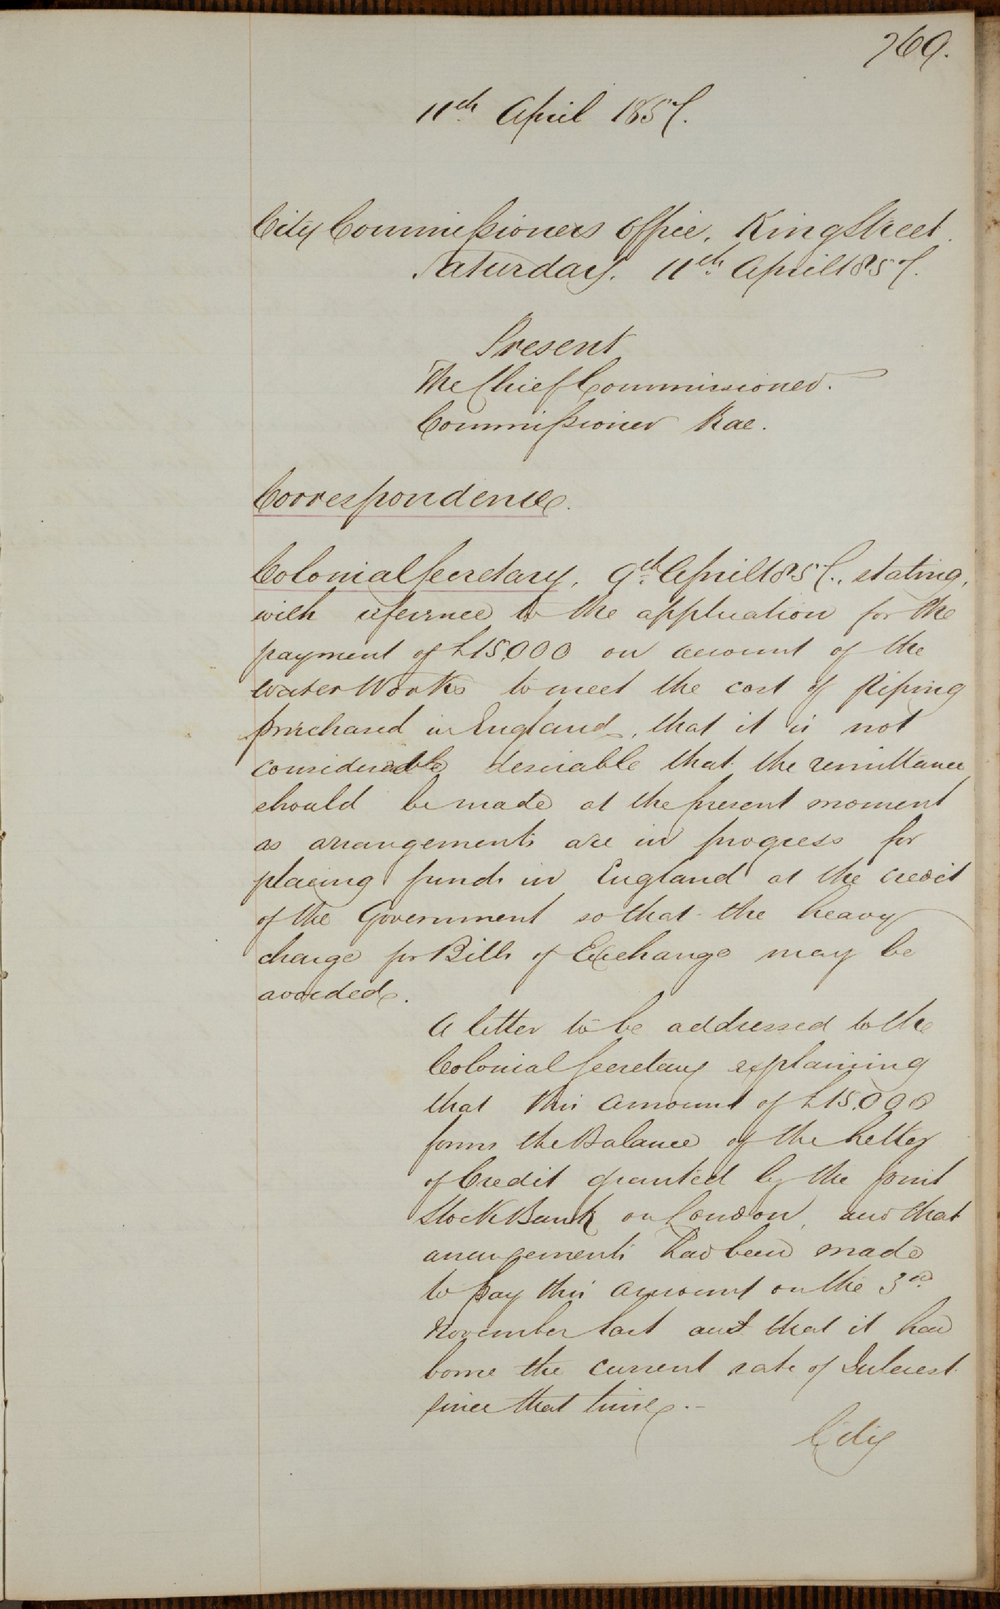 769.
11th April 1857.
City Commissioners Office, King Street
Saturday, 11th April 1857.
Present
The Chief Commissioner.
Commissioner Rae.
Correspondence.
Colonial Secretary, 9th April 1857., stating,
with reference to the application for the
payment of £15,000 on account of the
Water Works to meet the cost of Piping
purchased in England, that it is not
considerable desirable that the remittance
should be made at the present moment
as arrangements are in progress for
placing funds in England at the credit
of the Government so that the heavy
charge for Bills of Exchange may be
avoided.
A letter to be addressed to the
Colonial Secretary explaining
that this amount of £15,000
forms the Balance of the Letter
of Credit granted by the Joint
Stock Bank on London, and that
arrangements had been made
to pay this amount on the 3rd
November last and that it had
borne the current rate of Interest
since that time.-
City